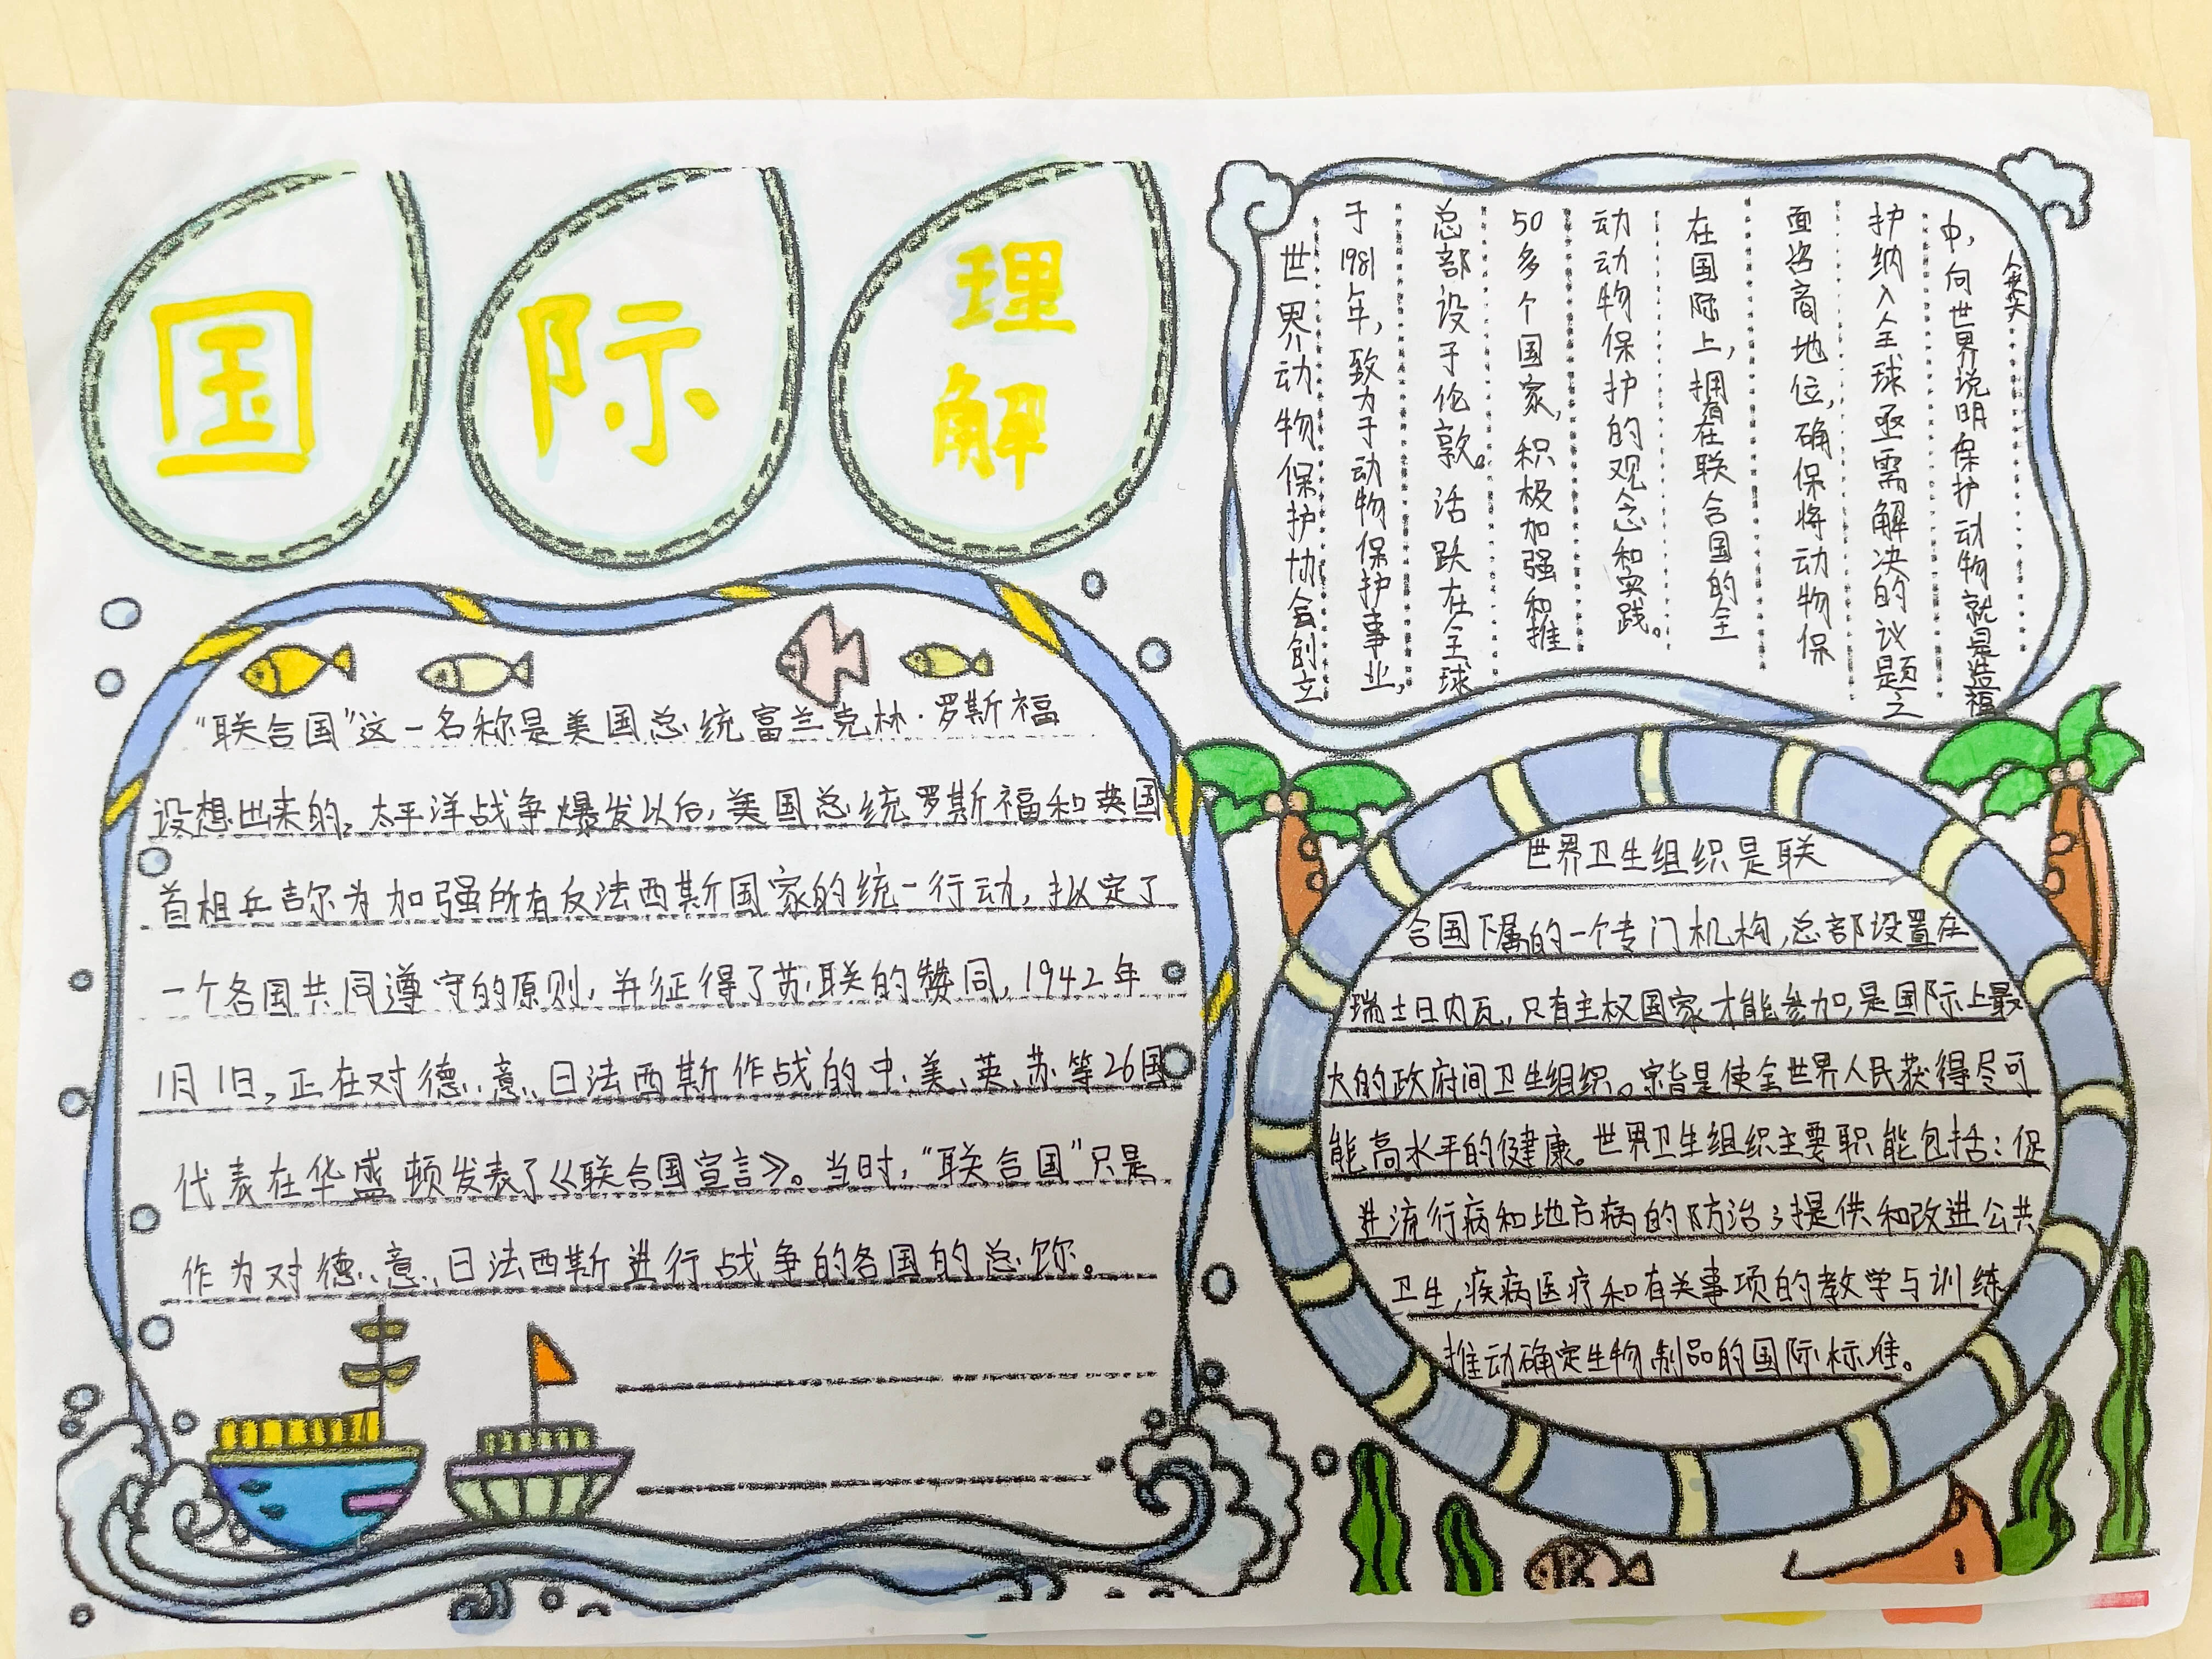 国际理解
"联合国"这一名称是美国总统富兰克林·罗斯福
设想出来的。太平洋战争爆发以后,美国总统罗斯福和英国
首相丘吉尔为加强所有反法西斯国家的统一行动,拟定了
一个各国共同遵守的原则,并征得了苏联的赞同,1942年
1月1日,正在对德、意、日法西斯作战的中、美、英、苏等26国
代表在华盛顿发表了《联合国宣言》。当时,"联合国"只是
作为对德、意、日法西斯进行战争的各国的总称。
世界动物保护协会创立
于1981年,致力于动物保护事业,
总部设于伦敦。活跃在全球
50多个国家,积极加强和推
动动物保护的观念和实践。
在国际上,拥有在联合国的全
面咨商地位,确保将动物保
护纳入全球亟需解决的议题之
中,向世界说明保护动物就是造福
人类
世界卫生组织是联
合国下属的一个专门机构,总部设置在
瑞士日内瓦,只有主权国家才能参加,是国际上最
大的政府间卫生组织。宗旨是使全世界人民获得尽可
能高水平的健康。世界卫生组织主要职能包括:促
进流行病和地方病的防治;提供和改进公共
卫生,疾病医疗和有关事项的教学与训练
推动确定生物制品的国际标准。